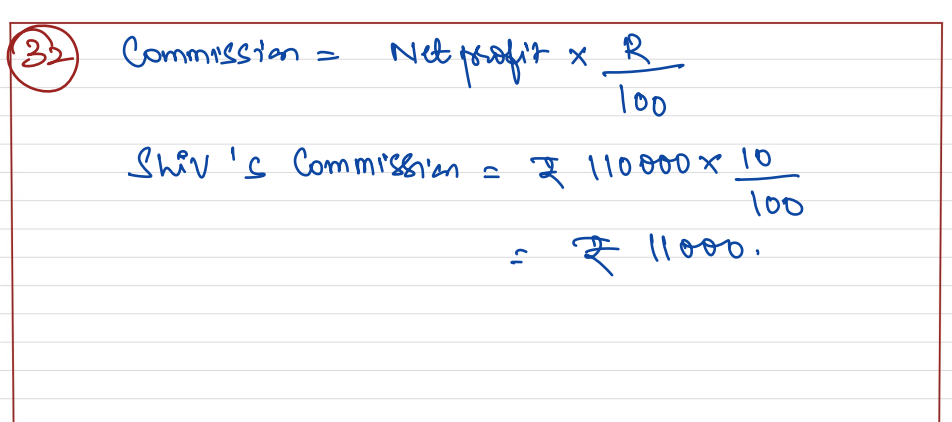 32 Commission = Net profit × R/100
Shiv's Commission = ₹ 110000 × 10/100
= ₹ 11000.